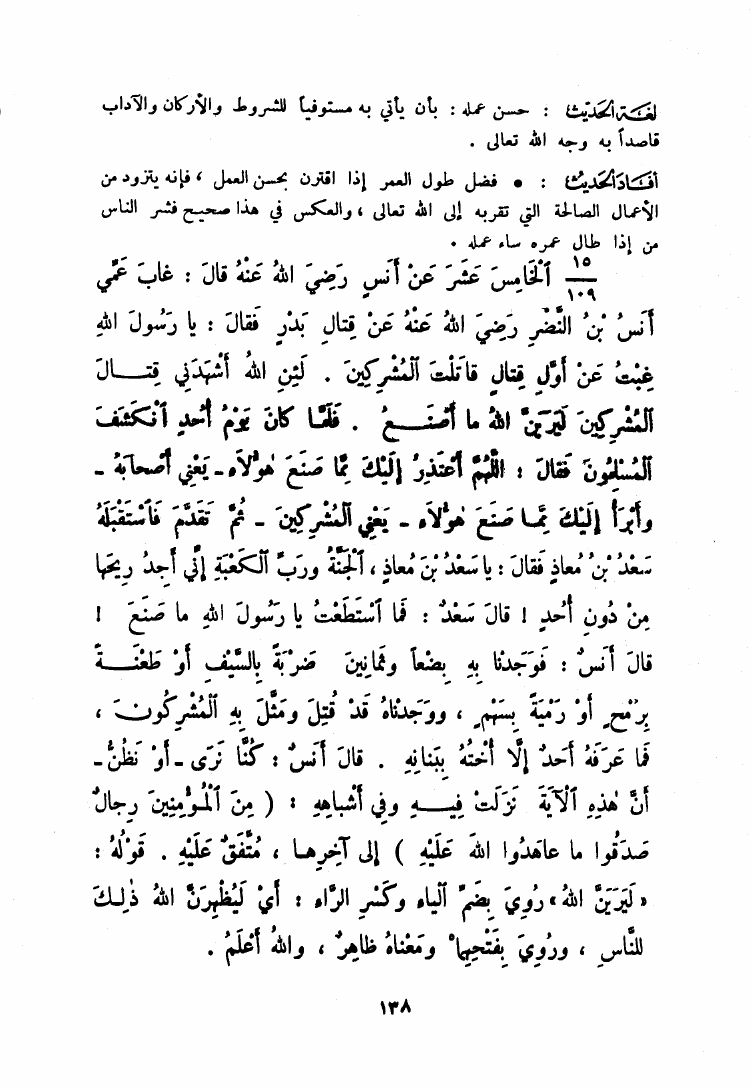 لغة الحديث : حسن عمله : بأن يأتي به مستوفياً للشروط والأركان والآداب
قاصداً به وجه الله تعالى .
أفاد الحديث : • فضل طول العمر إذا اقترن بحسن العمل ، فإنه يتزود من
الأعمال الصالحة التي تقربه إلى الله تعالى ، والعكس في هذا صحيح فشر الناس
من إذا طال عمره ساء عمله .
١٥
١٠٩
اَلْخَامِسَ عَشَرَ عَنْ أَنَسٍ رَضِيَ اللهُ عَنْهُ قَالَ : غَابَ عَمِّي
أَنَسُ بْنُ النَّضْرِ رَضِيَ اللهُ عَنْهُ عَنْ قِتَالِ بَدْرٍ فَقَالَ : يَا رَسُولَ اللهِ
غِبْتُ عَنْ أَوَّلِ قِتَالٍ قَاتَلْتَ اَلْمُشْرِكِينَ . لَئِنِ اللهُ أَشْهَدَنِي قِتَالَ
اَلْمُشْرِكِينَ لَيَرَيَنَّ اللهُ مَا أَصْنَعُ . فَلَمَّا كَانَ يَوْمُ أُحُدٍ اَنْكَشَفَ
اَلْمُسْلِمُونَ فَقَالَ : اَللَّهُمَّ أَعْتَذِرُ إِلَيْكَ مِمَّا صَنَعَ هٰؤُلَاءِ - يَعْنِي أَصْحَابَهُ -
وَأَبْرَأُ إِلَيْكَ مِمَّا صَنَعَ هٰؤُلَاءِ - يَعْنِي اَلْمُشْرِكِينَ - ثُمَّ تَقَدَّمَ فَاَسْتَقْبَلَهُ
سَعْدُ بْنُ مُعَاذٍ فَقَالَ : يَا سَعْدُ بْنَ مُعَاذٍ ، اَلْجَنَّةُ وَرَبِّ اَلْكَعْبَةِ إِنِّي أَجِدُ رِيحَهَا
مِنْ دُونِ أُحُدٍ ! قَالَ سَعْدٌ : فَمَا اَسْتَطَعْتُ يَا رَسُولَ اللهِ مَا صَنَعَ !
قَالَ أَنَسٌ : فَوَجَدْنَا بِهِ بِضْعاً وَثَمَانِينَ ضَرْبَةً بِالسَّيْفِ أَوْ طَعْنَةً
بِرُمْحٍ أَوْ رَمْيَةً بِسَهْمٍ ، وَوَجَدْنَاهُ قَدْ قُتِلَ وَمَثَّلَ بِهِ اَلْمُشْرِكُونَ ،
فَمَا عَرَفَهُ أَحَدٌ إِلَّا أُخْتُهُ بِبَنَانِهِ . قَالَ أَنَسٌ : كُنَّا نَرَى - أَوْ نَظُنُّ -
أَنَّ هٰذِهِ اَلْآيَةَ نَزَلَتْ فِيهِ وَفِي أَشْبَاهِهِ : ( مِنَ اَلْمُؤْمِنِينَ رِجَالٌ
صَدَقُوا مَا عَاهَدُوا اللهَ عَلَيْهِ ) إِلَى آخِرِهَا ، مُتَّفَقٌ عَلَيْهِ . قَوْلُهُ :
« لَيَرَيَنَّ اللهُ » رُوِيَ بِضَمِّ اَلْيَاءِ وَكَسْرِ الرَّاءِ : أَيْ لَيُظْهِرَنَّ اللهُ ذٰلِكَ
لِلنَّاسِ ، وَرُوِيَ بِفَتْحِهِمَا وَمَعْنَاهُ ظَاهِرٌ ، وَاللهُ أَعْلَمُ .
١٣٨